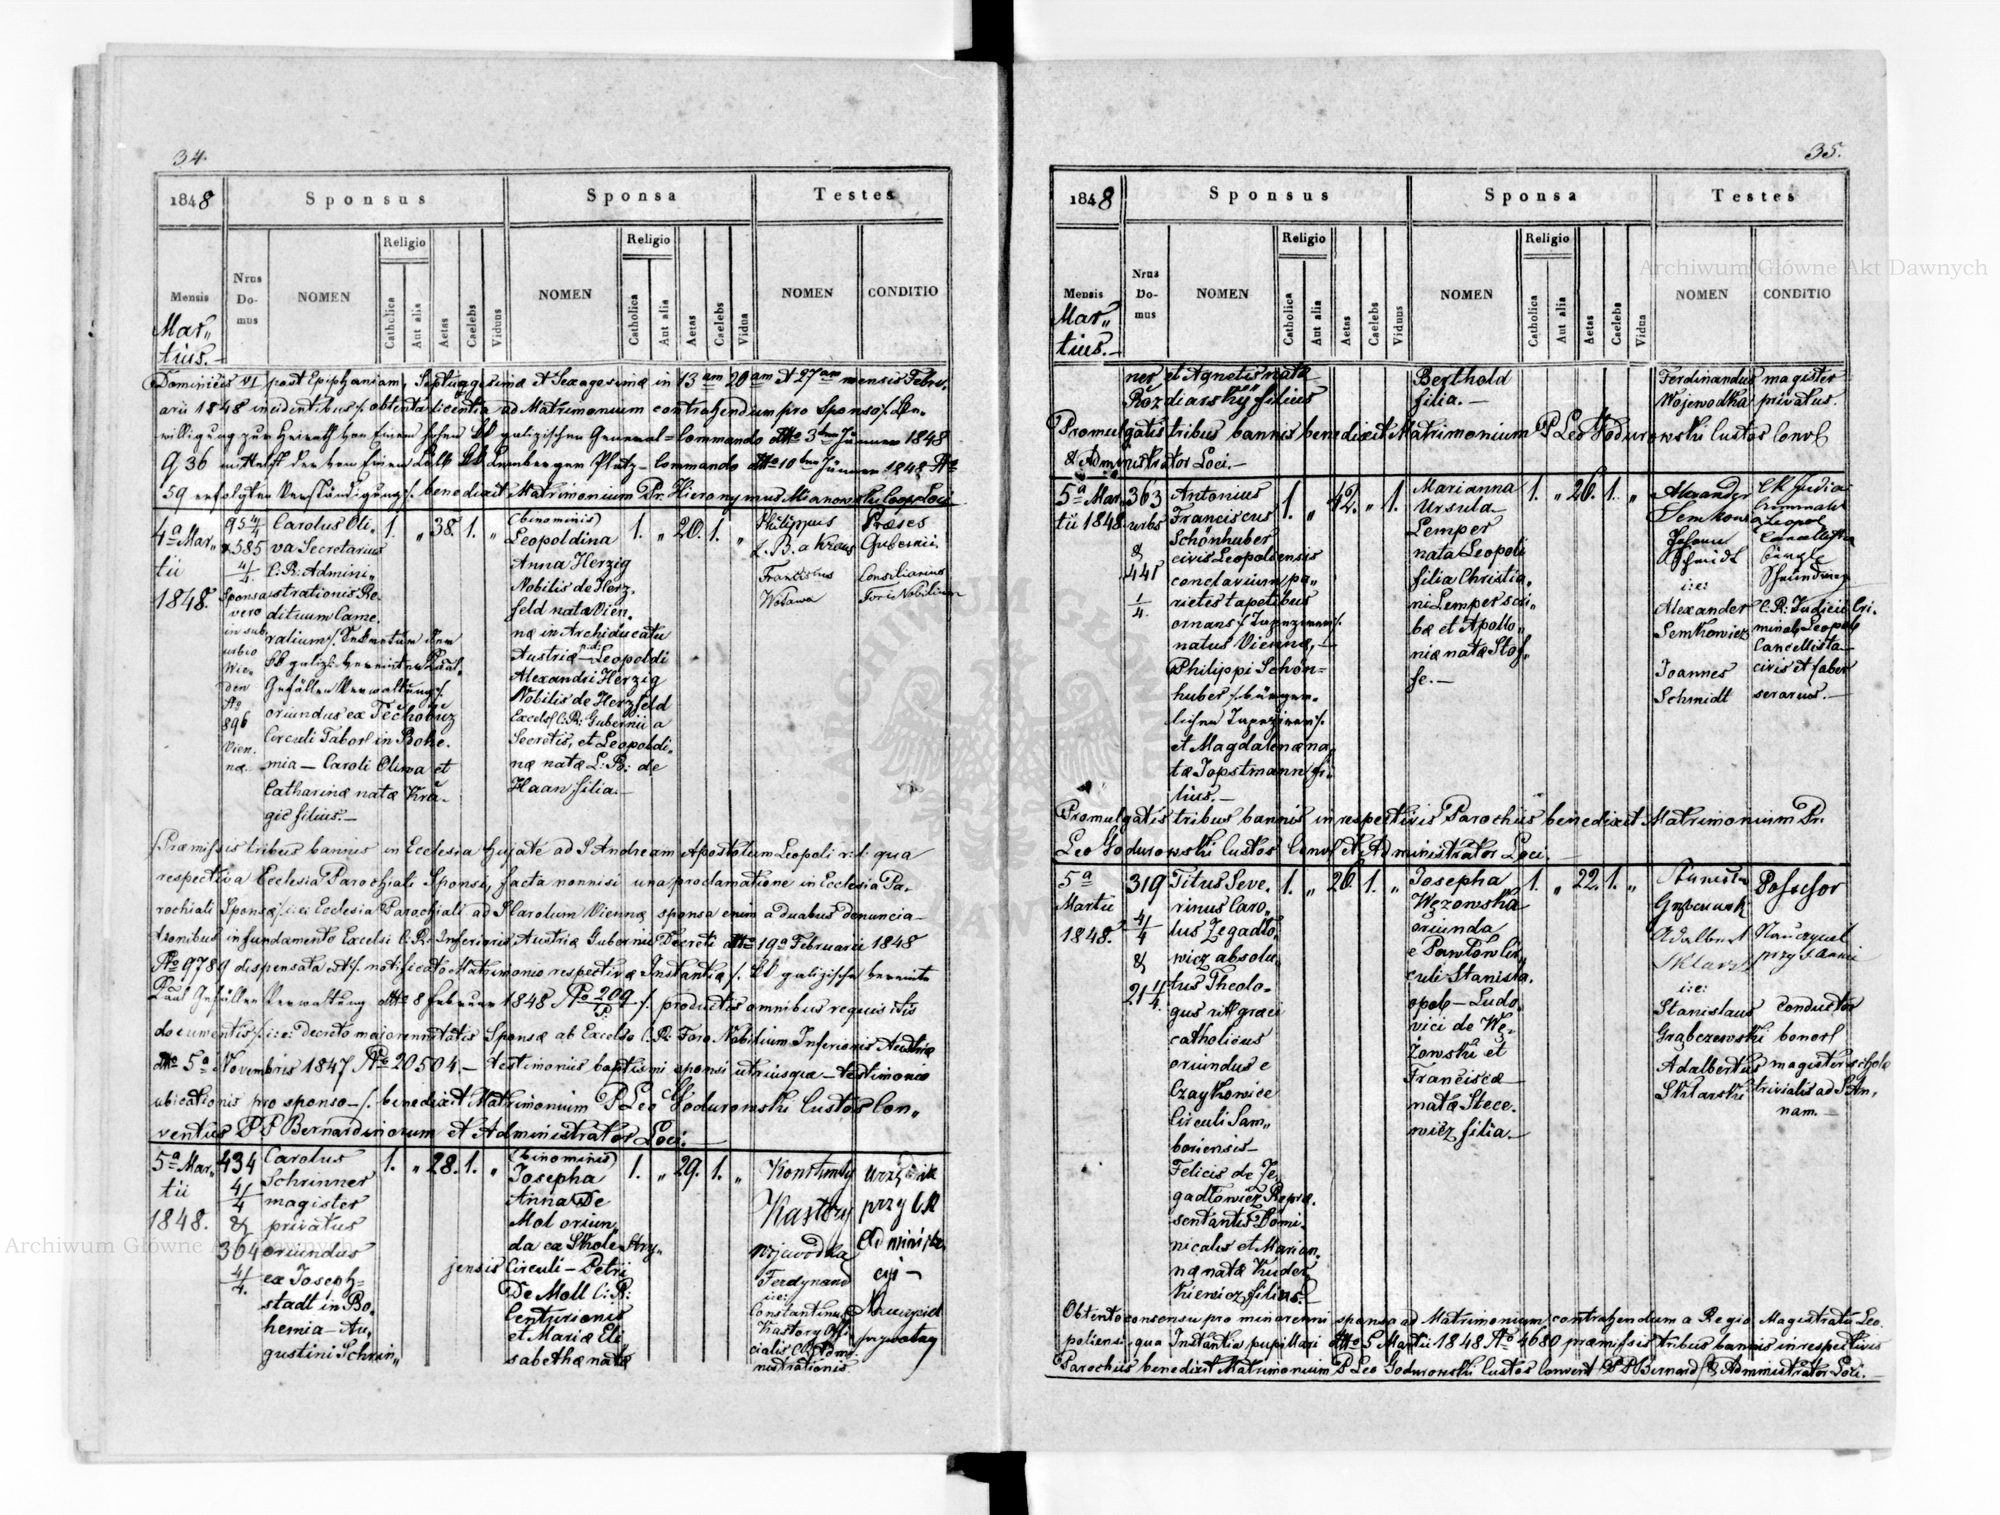 34.
1848
Sponsus
Sponsa
Testes
Mensis
Nrus Do- mus
NOMEN
Religio
Catholica
Aut alia
Aetas
Caelebs
Viduus
NOMEN
Religio
Catholica
Aut alia
Aetas
Caelebs
Vidua
NOMEN
CONDITIO
Mar„
tius.—
Dominicis VI post Epiphaniam, Septuagesimæ et Sexagesimæ in 13am 20am et 27am mensis Febru„
arii 1848 incidentibus /: obtenta licentia ad Matrimonium contrahendum pro Sponso /: Be„
willigung zur Heirath von Einem hohen kk galizischen General=Commando dtto 3ten Jänner 1848
59 erfolgten Verständigung /: benedixit Matrimonium Pr. Hieronymus Mianowski Coop. Loci
4a Mar„
tii
1848.
95 4/4
& 585
4/4
Sponsa
vero
in sub„
urbio
Wie„
den
No
896
Vien„
næ.
Carolus Oli„
va Secretarius
C: R: Admini„
strationis Re„
dituum Came„
ralium
Gefällen Verwaltung /:
oriundus ex Techobuz
Circuli Tabor in Bohe„
mia — Caroli Oliwa et
Catharinæ natæ Krä„
gic filius.—
1. „ 38. 1. „
(binominis)
Leopoldina
Anna Herzig
Nobilis de Herz„
feld nata Vien„
næ in Archiducatu
Austriæ — Leopoldi
Alexandri Herzig
Nobilis de Herzfeld
Excelsi C: R: Gubernii a
Secretis, et Leopoldi„
næ natæ L: B: de
Haan filia.—
1. „ 20. 1. „
Philippus
L. B. a Kraus
Franciscus
Wolawa
Præses
Gubernii.
Consiliarius
Fori Nobilium
Præmissis tribus bannis in Ecclesia hujate ad S Andream Apostolum Leopoli v: l: qua
respectiva Ecclesia Parochiali Sponsi, facta nonnisi una proclamatione in Ecclesia Pa„
rochiali Sponsæ /: i: e: Ecclesia Parochiali ad S Carolum Viennæ sponsa enim a duabus denuncia—
tionibus in fundamento Excelsi C: R: Inferioris Austriæ Gubernii Decreti dtto 19a Februarii 1848
No 9789 dispensata est /: notificato Matrimonio respectivæ Instantiæ /: kk galizische vereinte
Caal Gefällen Verwaltung dtto 8 Februar 1848 No 209 /: productis omnibus requisitis
documentis /: i: e: Decreto majorennitatis Sponsæ ab Excelso C: R: Foro Nobilium Inferioris Austriæ
dtto 5a Novembris 1847 No 20504.— testimoniis baptismi sponsi utriusque — testimonio
ubicationis pro sponso — /: benedixit Matrimonium P Leo Godurowski Custos Con„
ventus P P Bernardinorum et Administrator Loci.—
5a Mar„
tii
1848.
434
4/4
&
364
4/4.
Carolus
Schrinner
magister
privatus
oriundus
ex Joseph=
stadt in Bo„
hemia — Au„
gustini Schrin„
1. „ 28. 1. „
(binominis)
Josepha
Anna De
Mol oriun„
da ex Skole Stry„
jensis Circuli — Petri
De Moll C: R:
Centurionis
et Mariæ Eli„
sabethæ natæ
1. „ 29. 1. „
Konstanty
Kastory
Wojewodka
Ferdynand
i: e:
Constantinus
Kastory Offi„
cialis CR Admi„
nistrationis.
urzędnik
przy CK
Administra„
cyi —
Nauczyciel
prywatny
35.
1848
Sponsus
Sponsa
Testes
Mensis
Nrus Do- mus
NOMEN
Religio
Catholica
Aut alia
Aetas
Caelebs
Viduus
NOMEN
Religio
Catholica
Aut alia
Aetas
Caelebs
Vidua
NOMEN
CONDITIO
Mar„
tius.—
ner et Agnetis natæ
Rozdiarskÿ filius
Berthold
filia.—
Ferdinandus magister
Wojewodka privatus.
Promulgatis tribus bannis benedixit Matrimonium P Leo Godurowski Custos Conv
& Administrator Loci.—
5a Mar„
tii 1848.
363
urbs
&
441
1/4.
Antonius
Franciscus
Schönhuber
civis Leopoliensis
conclavium pa„
rietes tapetibus
ornans /: Tapezierer /:
natus Viennæ,—
Philippi Schön=
huber /: bürger„
lichen Tapezirers /:
et Magdalenæ na„
tæ Jopstmann fi„
lius.—
1. „ 42. „ 1.
Marianna
Ursula
Lemper
nata Leopoli
filia Christia„
ni Lemper scri„
bæ et Apollo„
niæ natæ Stof„
fe.—
1. „ 26. 1. „
Alexander
Johann
Schmidt
i: e:
Alexander
Semkowicz
Joannes
Schmidt
C: R: Judicii Cri„
minal: Leopol:
Cancellista—
civis et faber
serarius.—
Promulgatis tribus bannis in respectivis Parochiis benedixit Matrimonium Pr.
Leo Godurowski Custos Conv et Administrator Loci.—
5a
Martii
1848.
319
4/4
&
21 4/4.
Titus Seve„
rinus Caro„
lus Zegadło„
wicz absolu„
tus Theolo„
gus rit græci
catholicus
oriundus e
Czaykowice
Circuli Sam„
boriensis—
Felicis de Ze„
gadłowicz Repræ„
sentantis Domi„
nicalis et Marian„
næ natæ Kuder„
kiewicz filius.—
1. „ 26. 1. „
Josepha
Wężowska
oriunda
e Pawłow Cir„
culi Stanisla„
opol — Ludo„
vici de Wę„
żowski et
Franciscæ
natæ Stece„
wicz filia.—
1. „ 22. 1. „
Adalbert
Sklarski
i: e:
Stanislaus
Grąbczewski
Adalbertus
Sklarski
Posesor
Nauczyciel
przy S Annie
conductor
bonor
magister scholæ
trivialis ad S An„
nam.—
Obtento consensu pro minorenni sponsa ad Matrimonium contrahendum a Regio Magistratu Leo„
poliensi qua Instantia pupillari dtto 5 Martii 1848 No 4680 præmissis tribus bannis in respectivis
Parochiis benedixit Matrimonium P Leo Godurowski Custos Convent P P Bernard & Administrator Loci.—
Archiwum Główne Akt Dawnych
Archiwum Główne Akt Dawnych